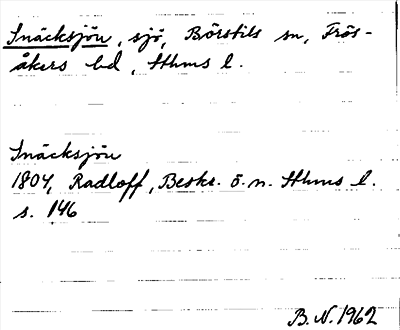 Snäcksjön, sjö, Börstils sn, Frös-
åkers hd, Sthms l.
Snäcksjön
1804, Radloff, Beskr. ö. n. Sthms l.
s. 146
B.N. 1962